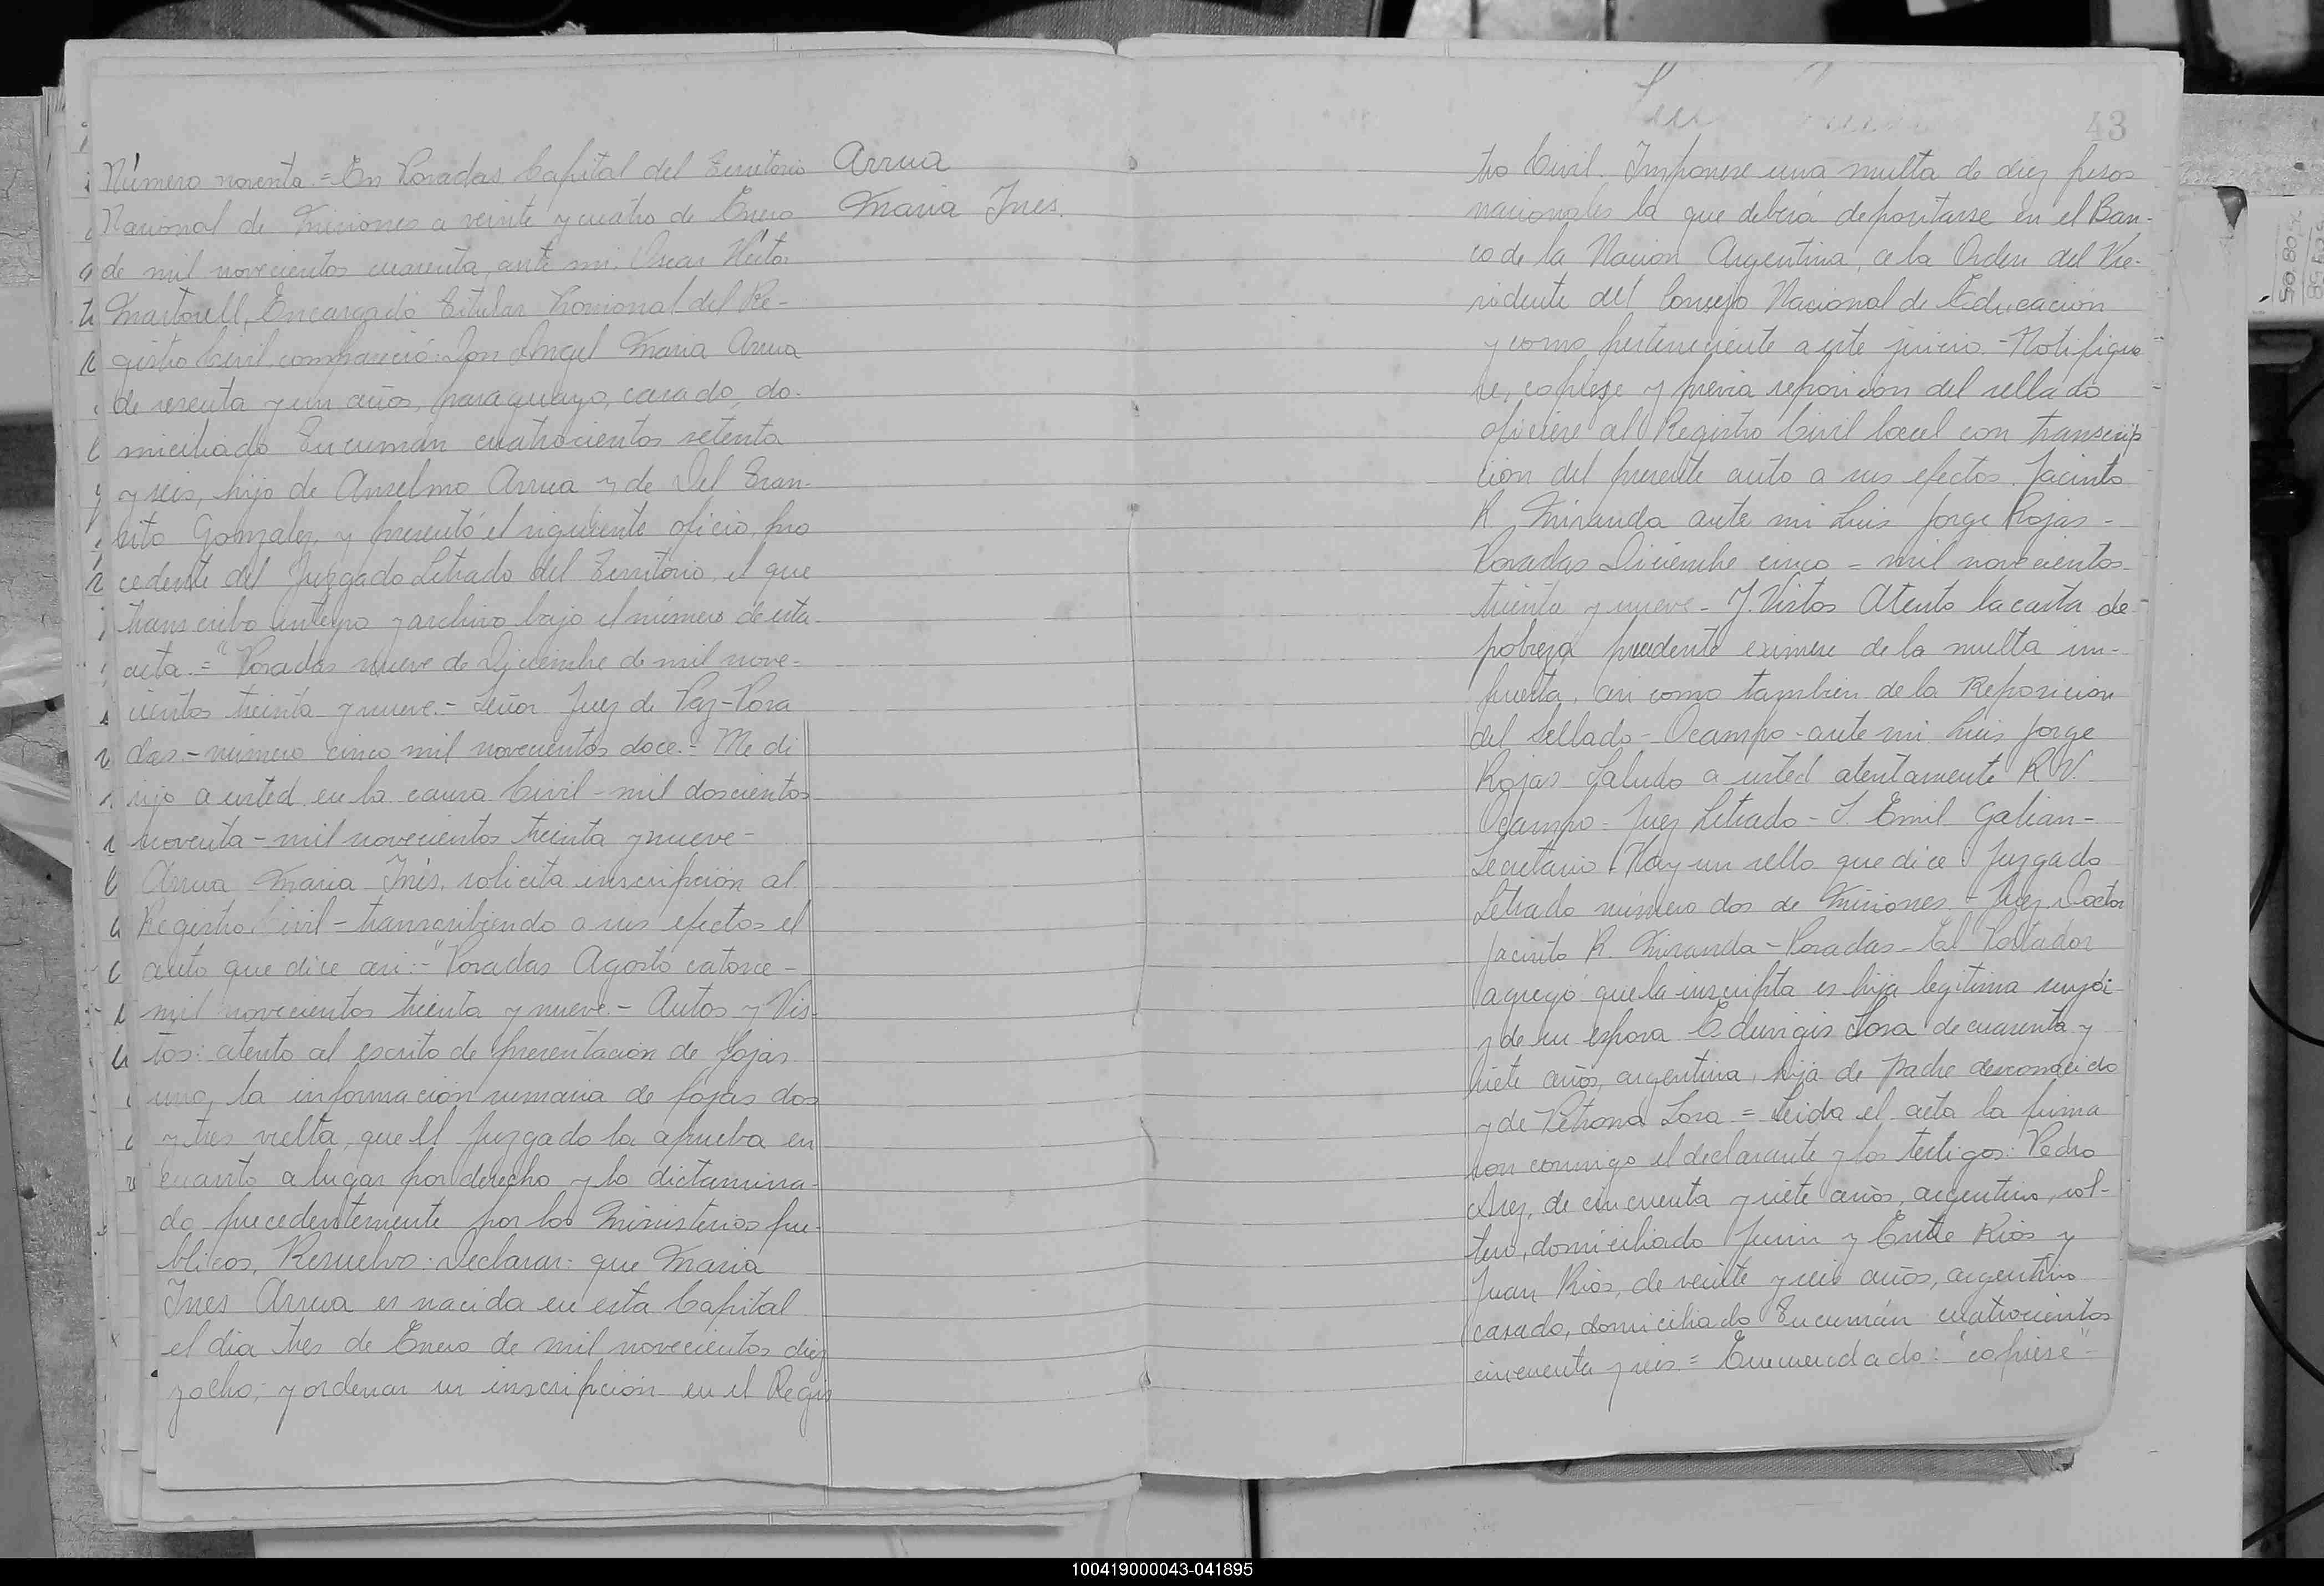 Número noventa.= En Posadas Capital del Territorio
Nacional de Misiones a veinte y cuatro de Enero
de mil novecientos cuarenta, ante mi, Oscar Héctor
Martorell, Encargado Titular Provisional del Re-
gistro Civil, compareció: Don Angel Maria Arrua
de sesenta y un años, paraguayo, casado, do-
miciliado Tucumán cuatrocientos setenta
y seis, hijo de Anselmo Arrua y de Del Tran-
sito Gonzalez, y presentó el siguiente oficio, pro
cedente del Juzgado Letrado del Territorio, el que
transcribo integro y archivo bajo el número de esta
acta.= "Posadas nueve de Diciembre de mil nove-
cientos treinta y nueve.- Señor Juez de Paz-Posa
das.- número cinco mil novecientos doce.- Me di
rijo a usted en la causa Civil - mil doscientos
noventa - mil novecientos treinta y nueve -
Arrua Maria Inés, solicita inscripción al
Registro Civil - transcribiendo a sus efectos el
auto que dice asi:- "Posadas Agosto catorce -
mil novecientos treinta y nueve.- Autos y Vis-
tos: atento al escrito de presentación de fojas
uno, la información sumaria de fojas dos
y tres vuelta, que el Juzgado la aprueba en
cuanto a lugar por derecho y lo dictamina-
do precedentemente por los Ministerios pu-
blicos, Resuelvo: Declarar: que Maria
Ines Arrua es nacida en esta Capital
el dia tres de Enero de mil novecientos diez
y ocho, y ordenar su inscripción en el Regis
Arrua
Maria Ines.
43
tro Civil. Imponese una multa de diez pesos
nacionales la que deberá depositarse en el Ban-
co de la Nacion Argentina, a la Orden del Pre-
sidente del Consejo Nacional de Educación
y como perteneciente a este juicio.- Notifique
se, copiese y previa reposicion del sellado
oficiese al Registro Civil local con transcrip
cion del presente auto a sus efectos. Jacinto
R. Miranda ante mi Luis Jorge Rojas -
Posadas Diciembre cinco = mil novecientos
treinta y nueve - Y. Vistos Atento la carta de
pobreza precedente eximese de la multa im-
puesta, asi como tambien de la Reposicion
del Sellado - Ocampo - ante mi Luis Jorge
Rojas Saludo a usted atentamente R. V.
Ocampo - Juez Letrado - S. Emil Galian -
Secretario. Hay un sello que dice Juzgado
Letrado número dos de Misiones. - Juez Doctor
Jacinto R. Miranda - Posadas - El Portador
agregó: que la inscripta es hija legitima suya
y de su esposa Eduvigis Sosa de cuarenta y
siete años, argentina, hija de padre desconocido
y de Petrona Sosa = Leida el acta la firma
ron conmigo el declarante y los testigos: Pedro
de cincuenta y siete años, argentino, sol-
tero, domiciliado Junin y Entre Rios y
Juan Rios, de veinte y seis años, argentino
casado, domiciliado Tucumán cuatrocientos
cincuenta y seis = Enmendado: "copiese" -
100419000043-041895